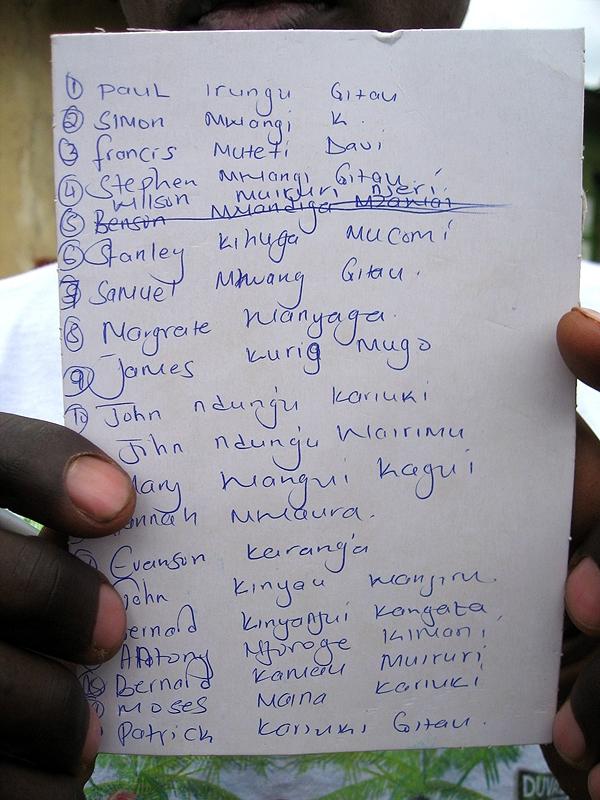 1 PAUL Irungu Gitau
2 SIMON Mwangi K.
3 francis Muteti Davi
4 Stephen Mwangi Gitau.
Wilson Muiruri Njeri.
5 Benson
6 Stanley Kihuga Mucomi
7 Samuel Mwang Gitau.
8 Margrate Wanyaga.
9 James Kurig Mugo
10 John ndung'u Kariuki
John ndung'u Wairimu
Mary Wangui Kagui
Mwaura.
Evanson Karanga
John Kinyau Wanjiru.
Bernard Kinyanjui Kangata
ANtony Njoroge Kimani,
Bernard Kamau Muiruri
Moses Maina Kariuki
Patrick Kariuki Gitau.
DUVA